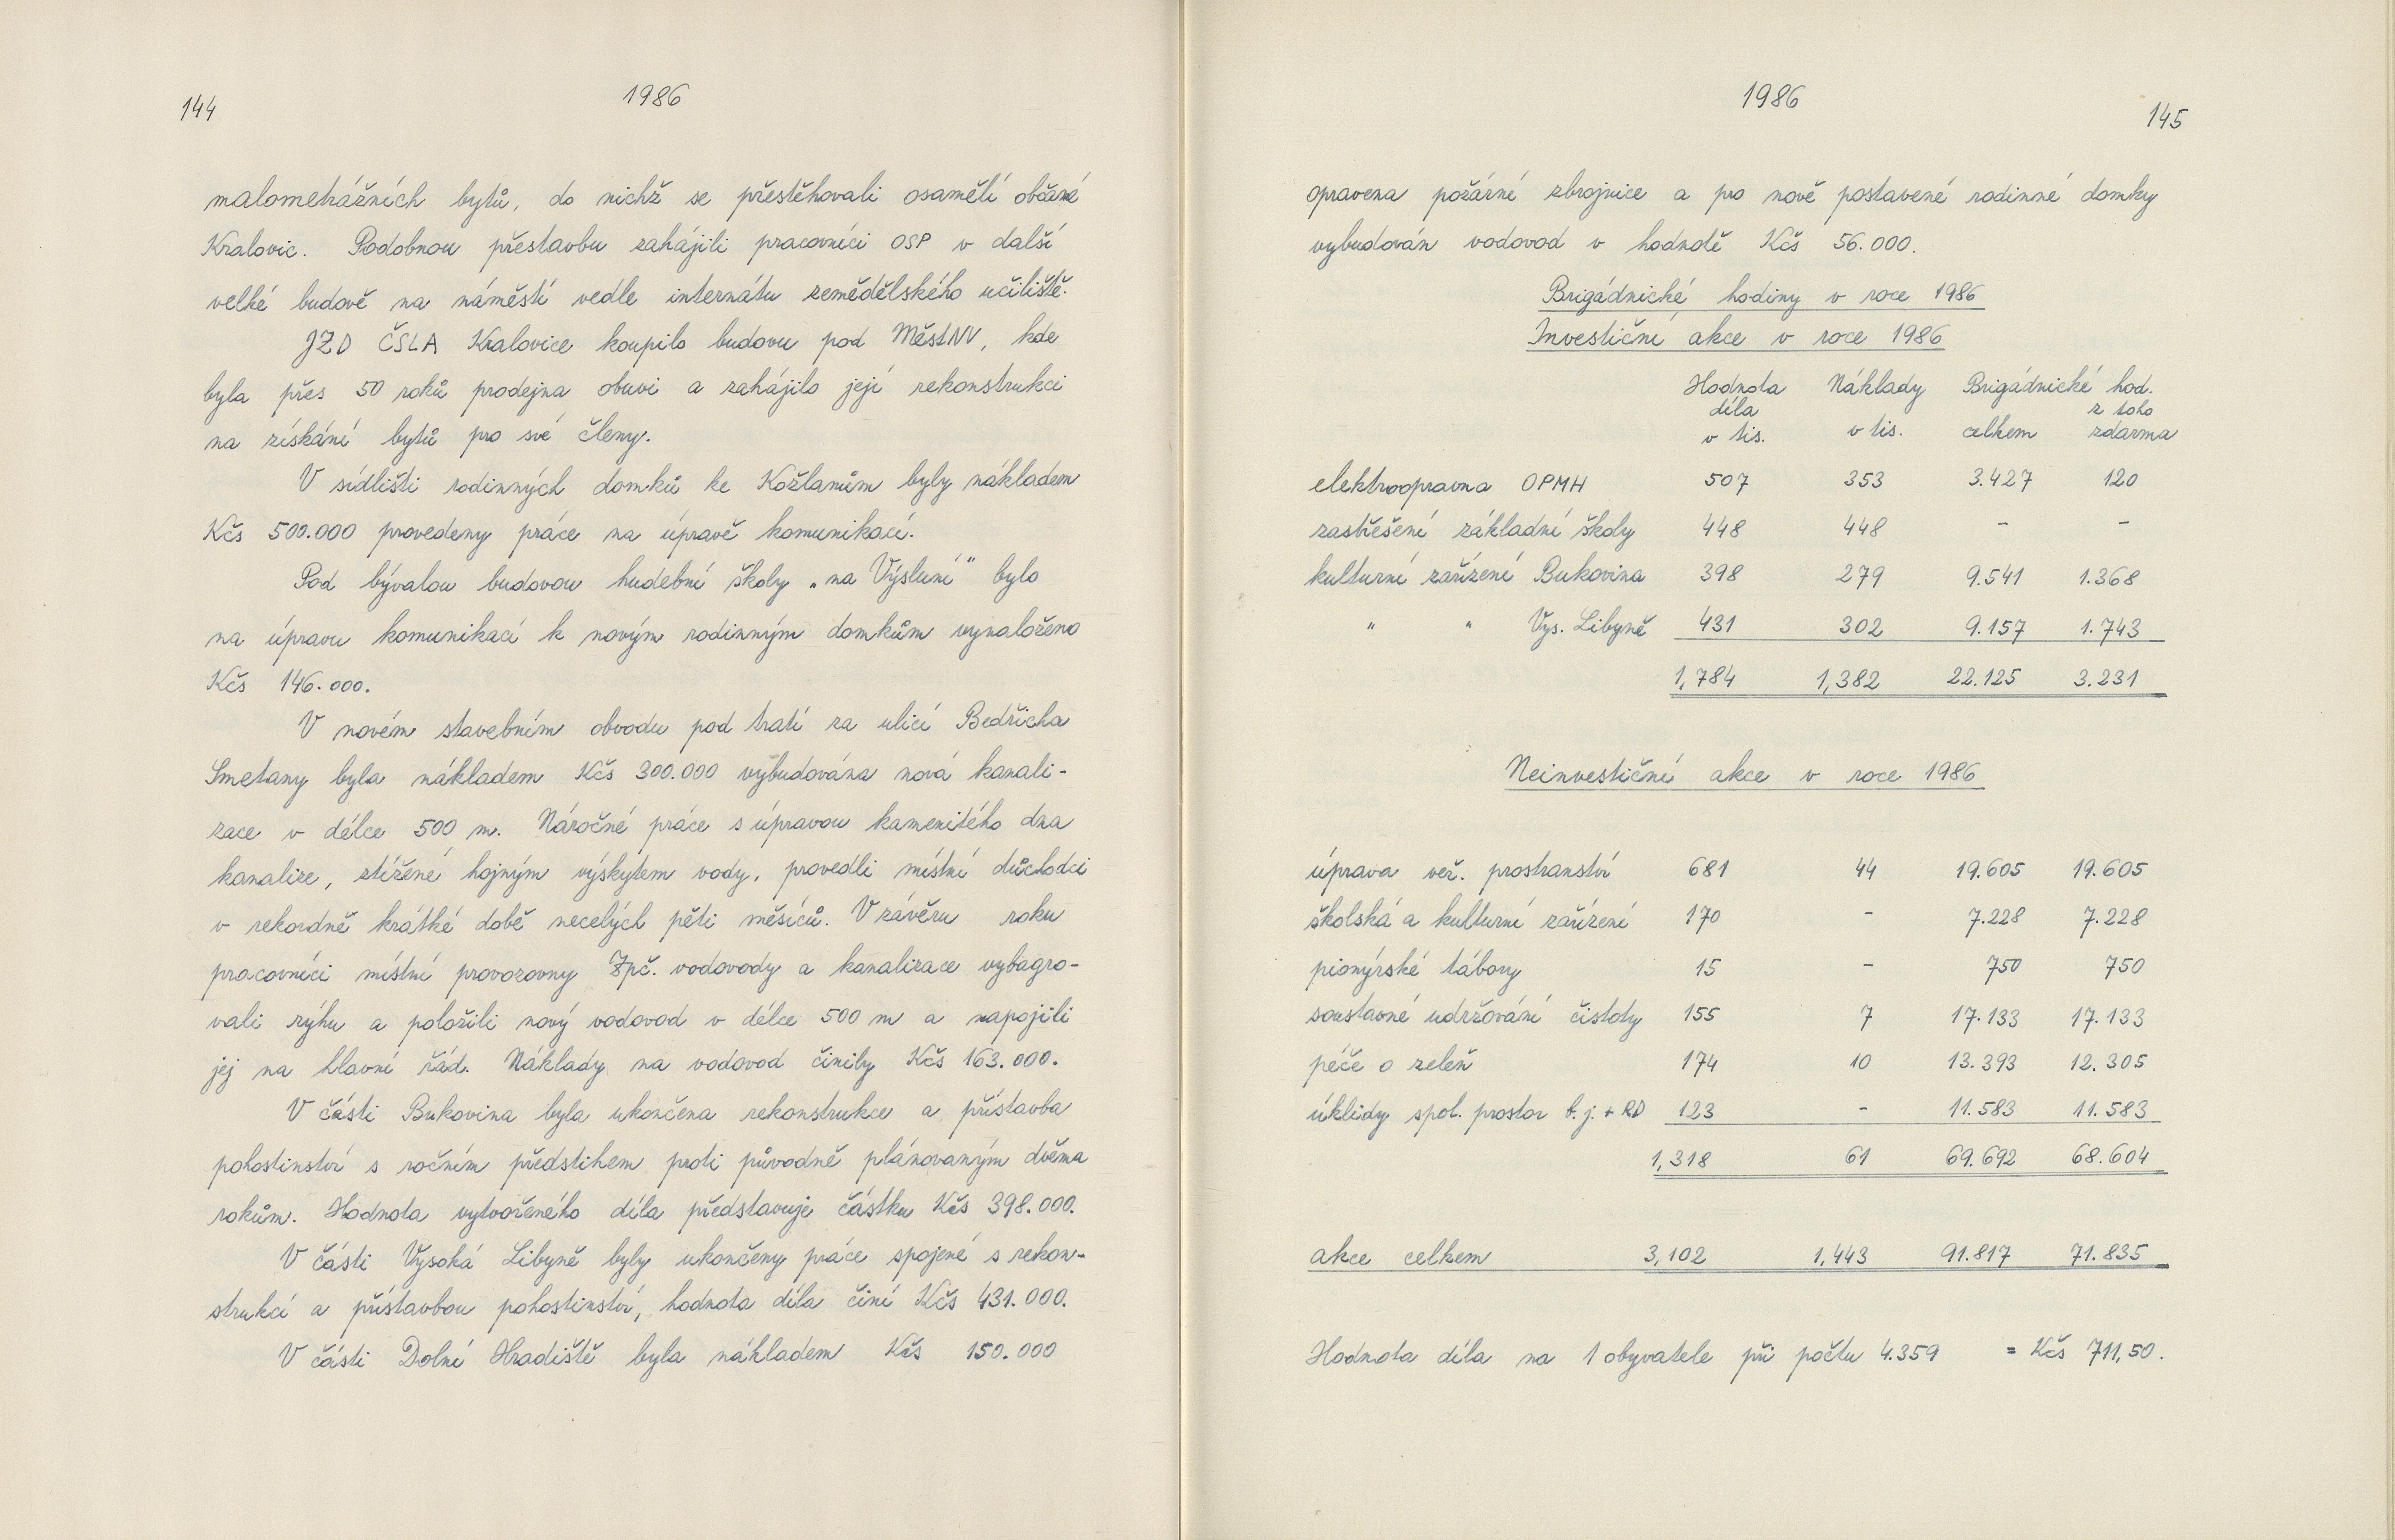 144
1986
malometrážních bytů, do nichž se přestěhovali osamělí občané
Kralovic. Podobnou přestavbu zahájili pracovníci OSP v další
velké budově na náměstí vedle internátu zemědělského učiliště.
JZD ČSLA Kralovice koupilo budovu pod MěstNV, kde
byla přes 50 roků prodejna obuvi a zahájilo její rekonstrukci
na získání bytů pro své členy.
V sídlišti rodinných domků ke Kožlanům byly nákladem
Kčs 500.000 provedeny práce na úpravě komunikací.
Pod bývalou budovou hudební školy „na Výsluní" bylo
na úpravu komunikací k novým rodinným domkům vynaloženo
Kčs 146.000.
V novém stavebním obvodu pod tratí za ulicí Bedřicha
Smetany byla nákladem Kčs 300.000 vybudována nová kanali-
zace v délce 500 m. Náročné práce s úpravou kamenitého dna
kanalize, ztížené hojným výskytem vody, provedli místní důchodci
v rekordně krátké době necelých pěti měsíců. V závěru roku
pracovníci místní provozovny Zpč. vodovody a kanalizace vybagro-
vali rýhu a položili nový vodovod v délce 500 m a napojili
jej na hlavní řád. Náklady na vodovod činily Kčs 163.000.
V části Bukovina byla ukončena rekonstrukce a přístavba
pohostinství s ročním předstihem proti původně plánovaným dvěma
rokům. Hodnota vytvořeného díla představuje částku Kčs 398.000.
V části Vysoká Libyně byly ukončeny práce spojené s rekon-
strukcí a přístavbou pohostinství, hodnota díla činí Kčs 431.000.
V části Dolní Hradiště byla nákladem Kčs 150.000
1986
145
opravena požární zbrojnice a pro nově postavené rodinné domky
vybudován vodovod v hodnotě Kčs 56.000.
Brigádnické hodiny v roce 1986
Investiční akce v roce 1986
Hodnota Náklady Brigádnické hod.
díla z toho
v tis. v tis. celkem zdarma
elektroopravna OPMH 507 353 3.427 120
zastřešení základní školy 448 448 - -
kulturní zařízení Bukovina 398 279 9.541 1.368
" " Vys. Libyně 431 302 9.157 1.743
1,784 1,382 22.125 3.231
Neinvestiční akce v roce 1986
úprava veř. prostranství 681 44 19.605 19.605
školská a kulturní zařízení 170 - 7.228 7.228
pionýrské tábory 15 - 750 750
soustavné udržování čistoty 155 7 17.133 17.133
péče o zeleň 174 10 13.393 12.305
úklidy spol. prostor b.j. + RD 123 - 11.583 11.583
1,318 61 69.692 68.604
akce celkem 3,102 1,443 91.817 71.835
Hodnota díla na 1 obyvatele při počtu 4.359 = Kčs 711,50.